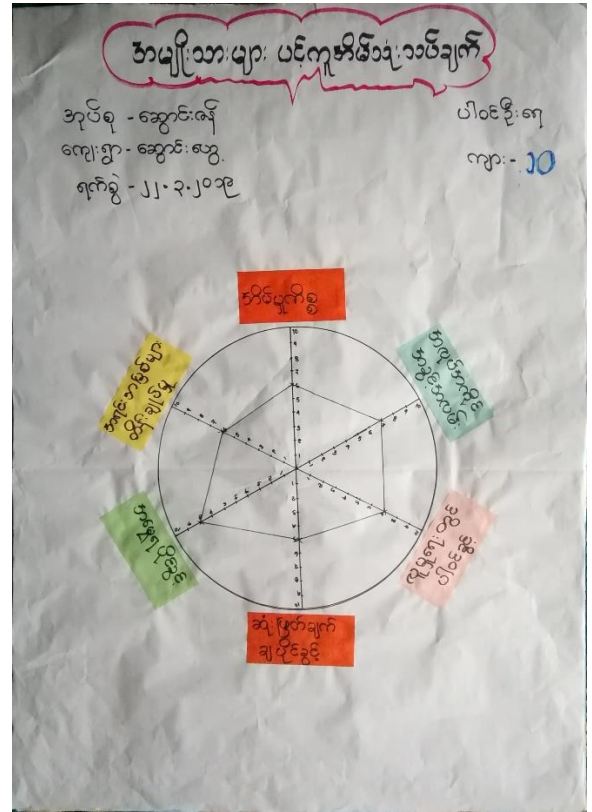 အမျိုးသားများ ပင့်ကူအိမ်သုံးသပ်ချက်
အုပ်စု - ဆောင်းဇန်
ကျေးရွာ - ဆောင်းဟွေ့
ရက်စွဲ - ၂၂.၃.၂၀၁၉
ပါဝင်ဦးရေ
ကျား - ၁၀
အိမ်မှုကိစ္စ
အလုပ်အကိုင်
အခွင့်အလမ်း
လူမှုရေးတွင်
ပါဝင်ခွင့်
ဆုံးဖြတ်ချက်
ချပိုင်ခွင့်
အမွေရပိုင်ခွင့်
အရင်းအမြစ်များ
ထိန်းချုပ်မှု